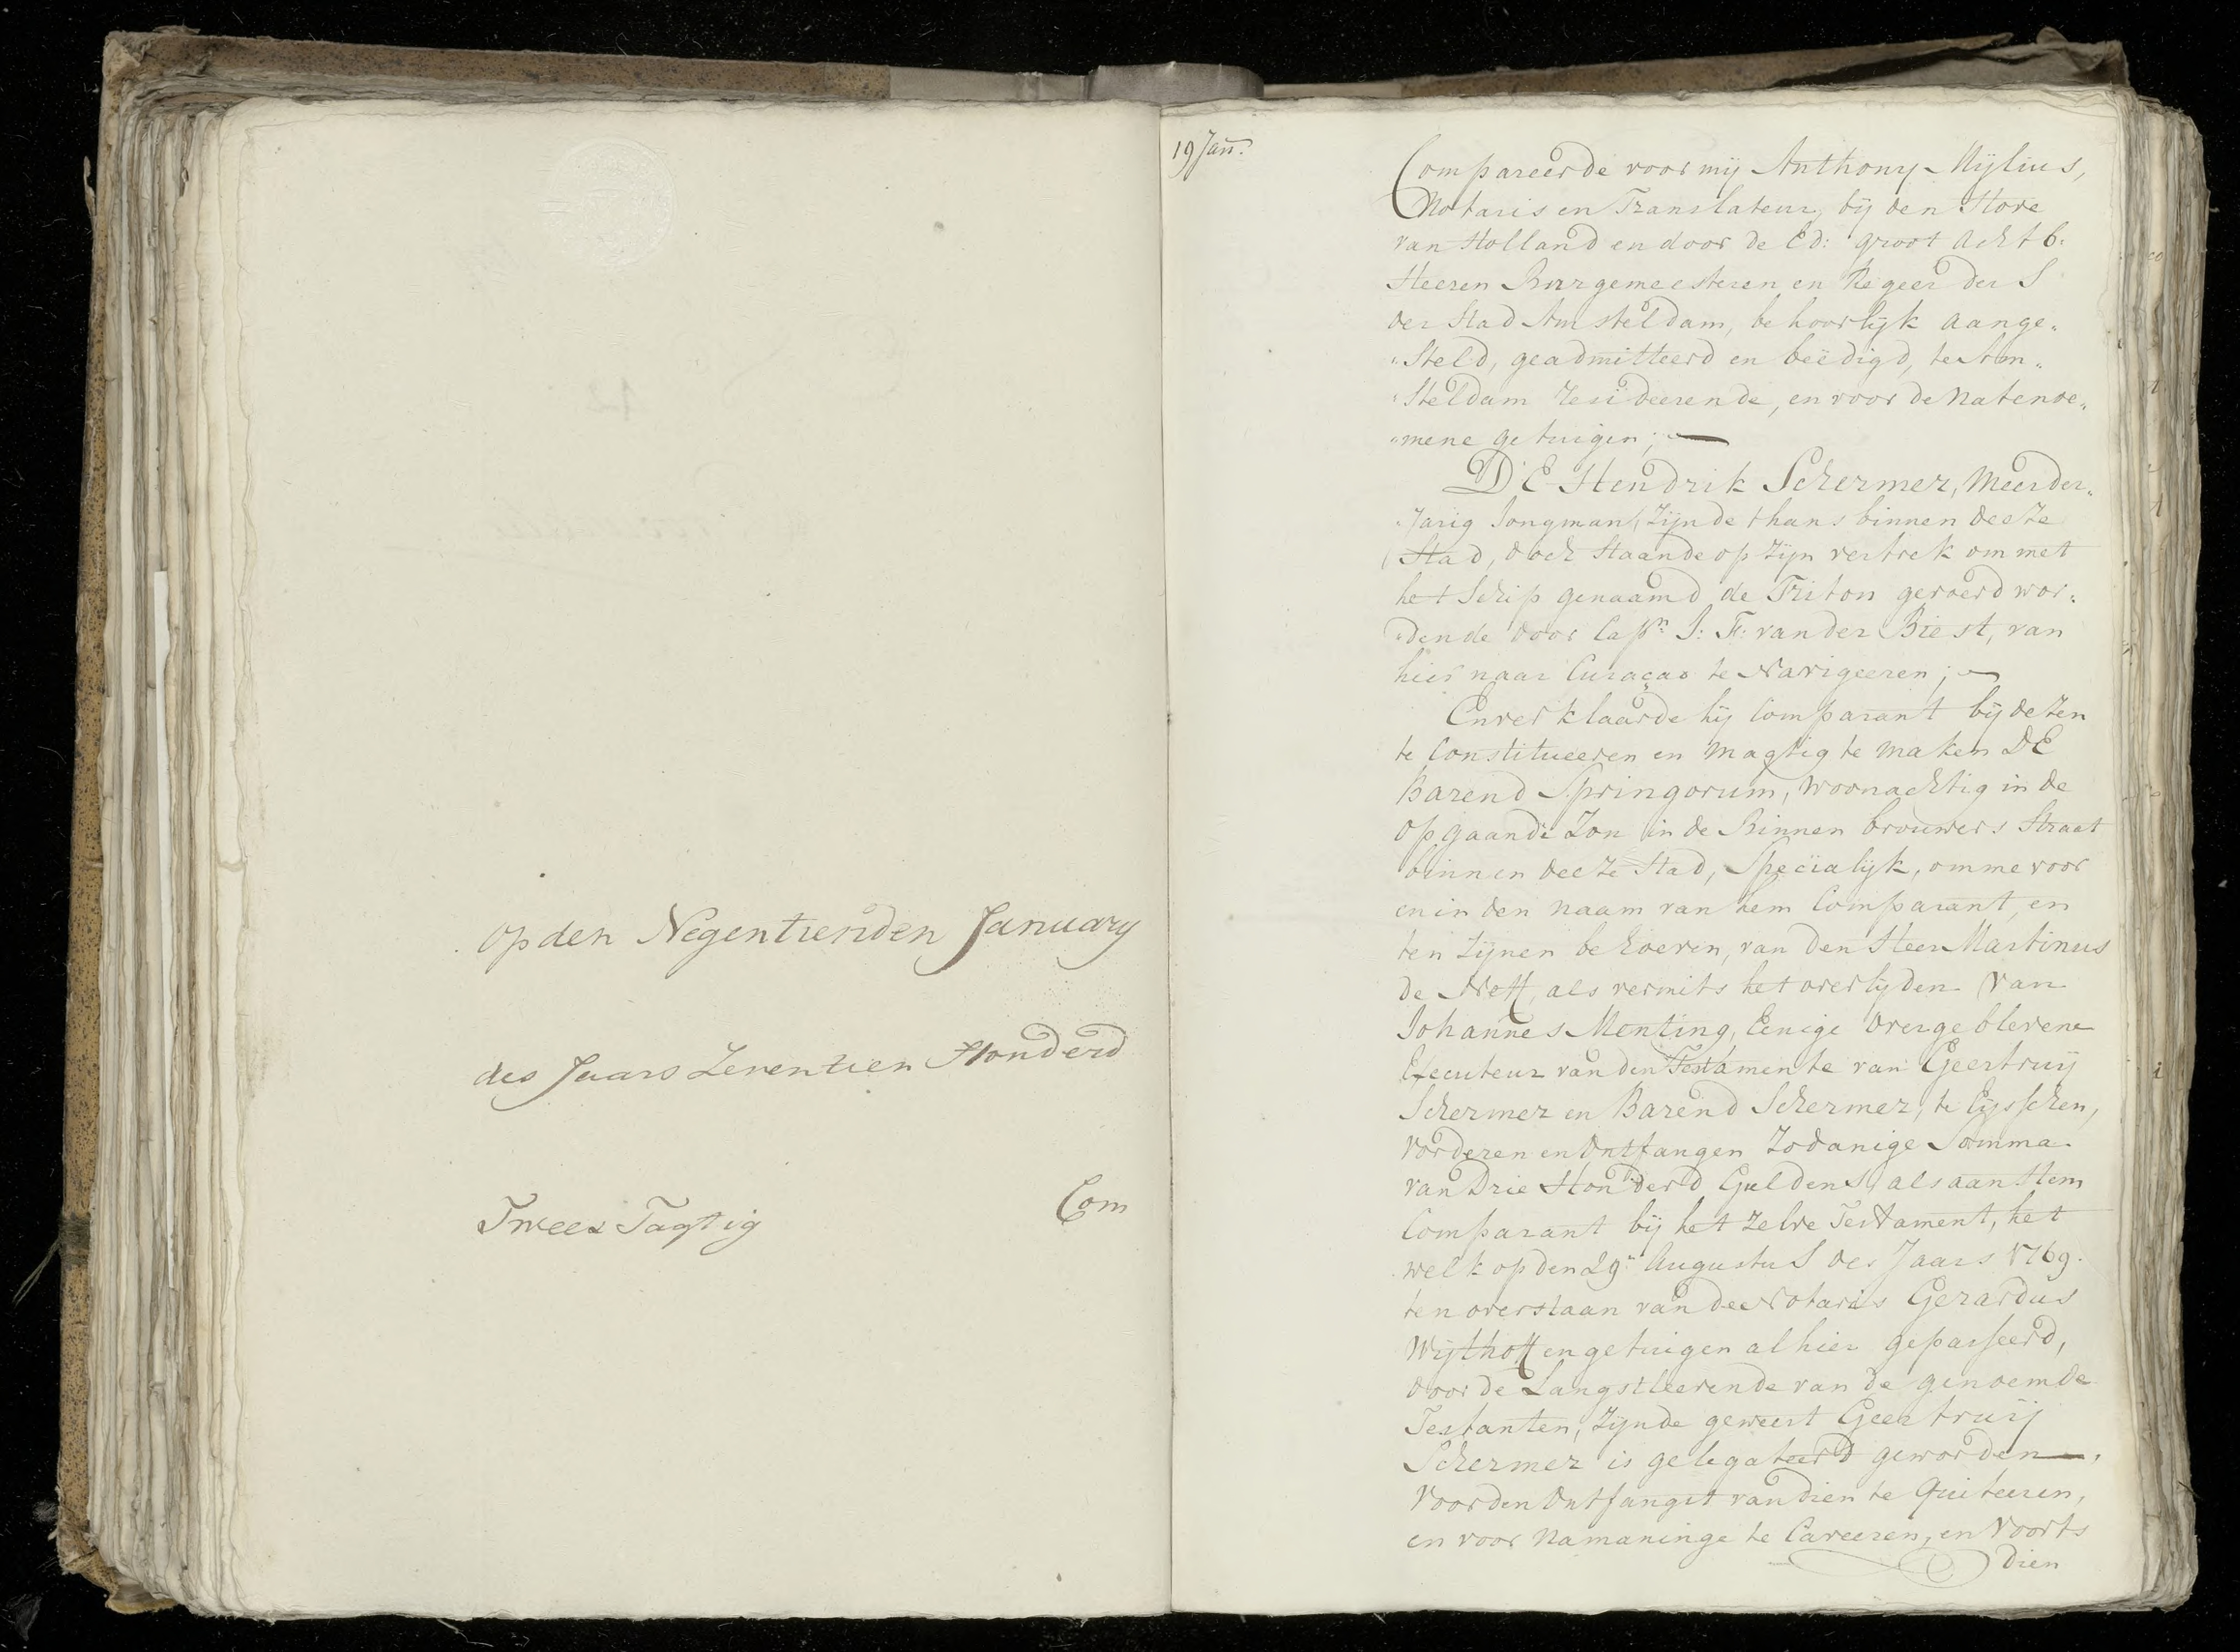 Op den Negentienden January
des Jaars Zeventien Honderd
Twee & Tagtig
Com
19 Jan:
Compareerde voor mij Anthony Mijlius,
Notaris en Translateur, bij den Hove
van Holland en door de Ed: Groot Achtb:
Heeren Burgemeesteren en Regeerders
der Stad Amsteldam, behoorlijk aange„
„steld, geadmitteerd en beëdigd, te Am„
„steldam resideerende, en voor de natenoe„
„mene getuigen; —
D'E Hendrik Schermer, Meerder„
Jarig Jongman, zijnde thans binnen deeze
Stad, doch staande op zijn vertrek om met
het Schip genaamd de Triton gevoerd wor„
„dende door Capn: J: F: van der Biest, van
hier naar Curaçao te Navigeeren; —
En verklaarde hij Comparant bij dezen
te Constitueeren en magtig te maken D E
Barend Springorum, woonachtig in de
opgaande Zon in de Binnen brouwers Straat
binnen deeze Stad, Specialijk, omme voor
en in den naam van hem Comparant, en
ten zijnen behoeven, van den Heer Martinus
de Neff, als vermits het overlijden van
Johannes Menting, Eenige overgeblevene
Executeur van den Testamente van Geertruij
Schermer en Barend Schermer, te Eijsschen,
vorderen en Ontfangen Zodanige Somma
van Drie Honderd Guldens, als aan Hem
Comparant bij het zelve Testament, het
welk op den 29n Augustus des Jaars 1769.
ten overstaan van de Notaris Gerardus
Wijthoff en getuigen alhier gepasseerd,
door de Langstleevende van de genoemde
Testanten, zijnde geweest Geertruij
Schermer is gelegateerd geworden —,
Voor den Ontfangst van dien te Quiteeren,
en voor Namaninge te Caveeren, en voorts
dien